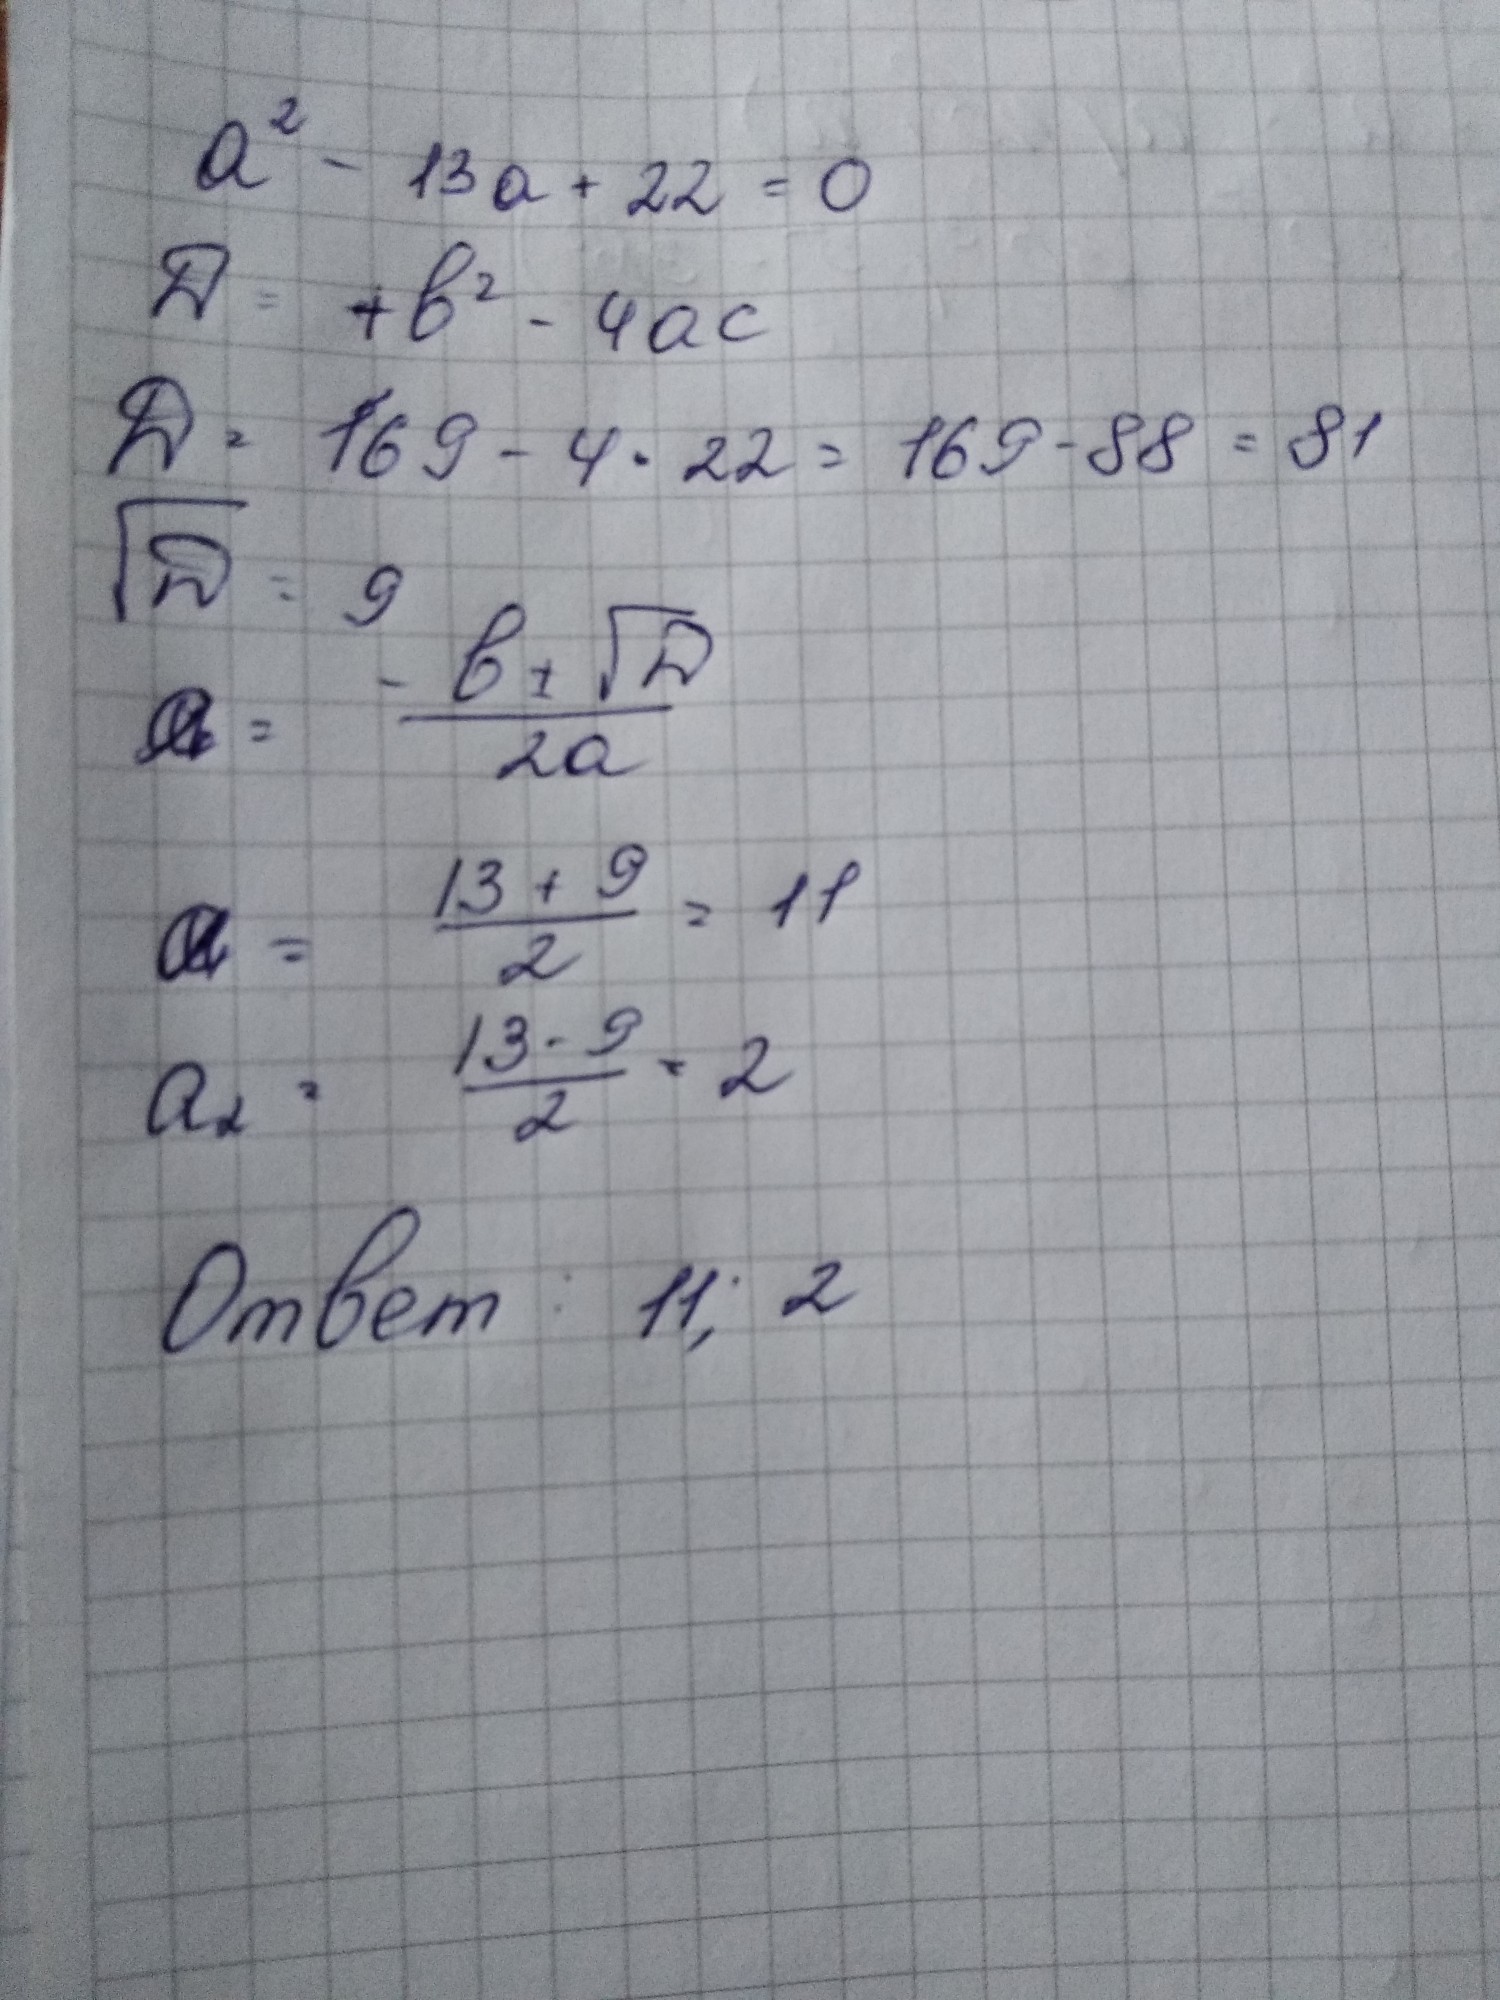 a² - 13a + 22 = 0
D = +b² - 4ac
D = 169 - 4 · 22 = 169 - 88 = 81
√D = 9
a = (-b ± √D) / 2a
a = (13 + 9) / 2 = 11
a₂ = (13 - 9) / 2 = 2
Ответ: 11; 2